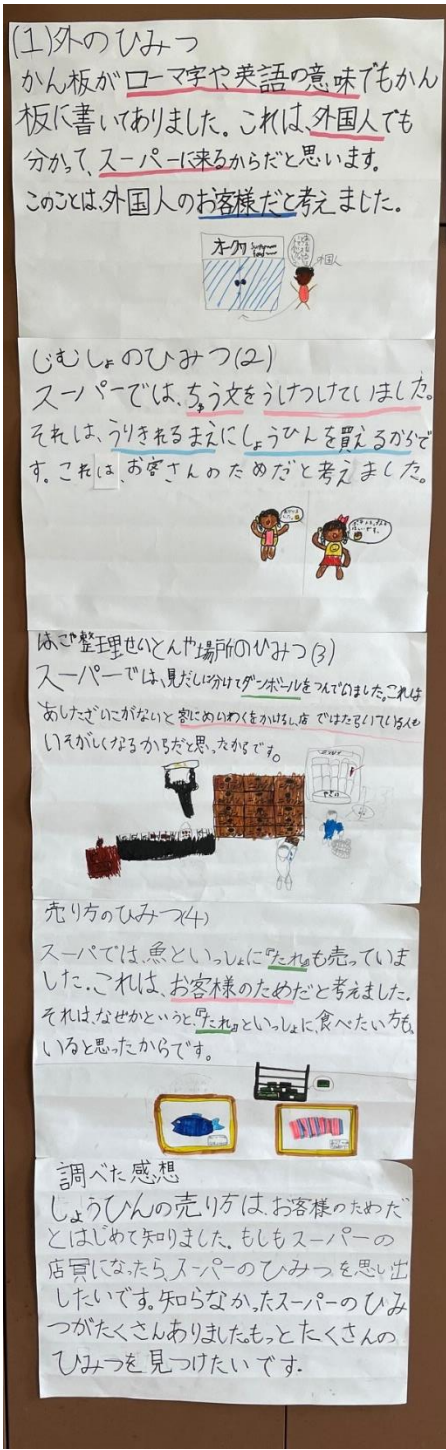 (1)外のひみつ
かん板がローマ字や、英語の意味でもかん
板に書いてありました。これは、外国人でも
分かって、スーパーに来るからだと思います。
このことは、外国人のお客様だと考えました。
オークワ
外国人
じむしょのひみつ(2)
スーパーでは、ちゅう文をうけつけていました。
それは、うりきれるまえにしょうひんを買えるからで
す。これは、お客さんのためだと考えました。
整理せいとんや場所のひみつ(3)
スーパーでは、見だしに分けてダンボールをつんでいました。これは
あしたざいこがないと客にめいわくをかけるし、店ではたらいている人も
いそがしくなるからだと思ったからです。
売り方のひみつ(4)
スーパでは、魚といっしょに『たれ』も売っていま
した。これは、お客様のためだと考えました。
それは、なぜかというと、『たれ』といっしょに、食べたい方も、
いると思ったからです。
調べた感想
しょうひんの売り方は、お客様のためだ
とはじめて知りました。もしもスーパーの
店員になったら、スーパーのひみつを思い出
したいです。知らなかったスーパーのひみ
つがたくさんありました。もっとたくさんの
ひみつを見つけたいです。